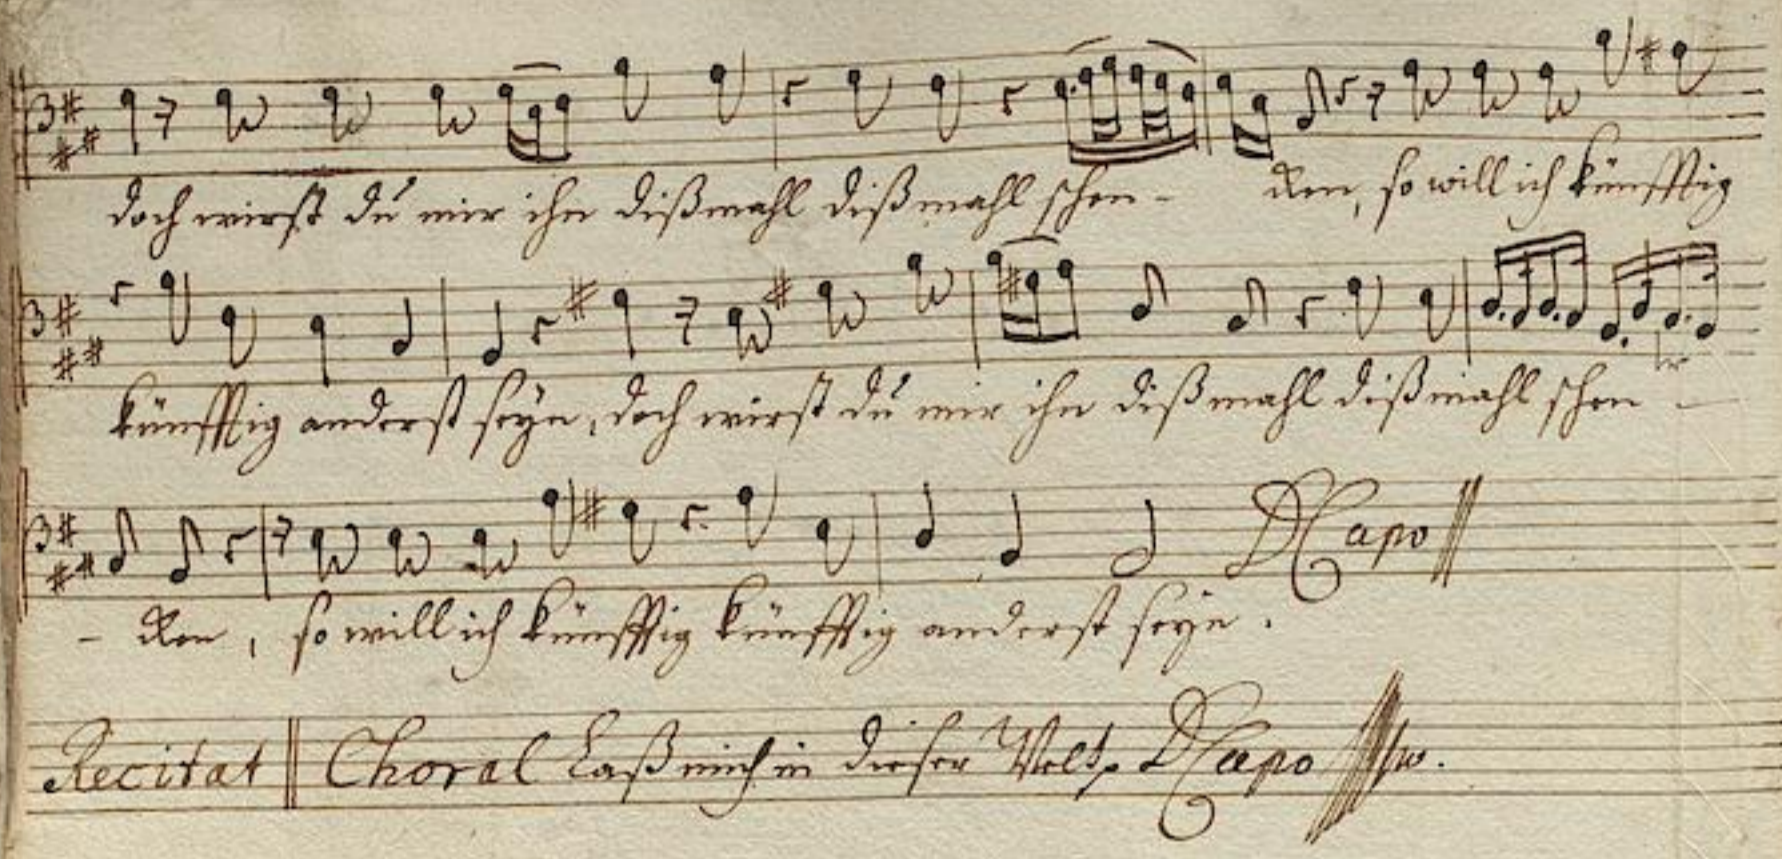 doch wirst du mir ihn dißmahl dißmahl schen- cken, so will ich künfftig
künfftig anderst seyn, doch wirst du mir ihn dißmahl dißmahl schen -
- cken, so will ich künfftig künfftig anderst seyn.
DCapo
Recitat || Choral Laß mich in dieser Welt DCapo